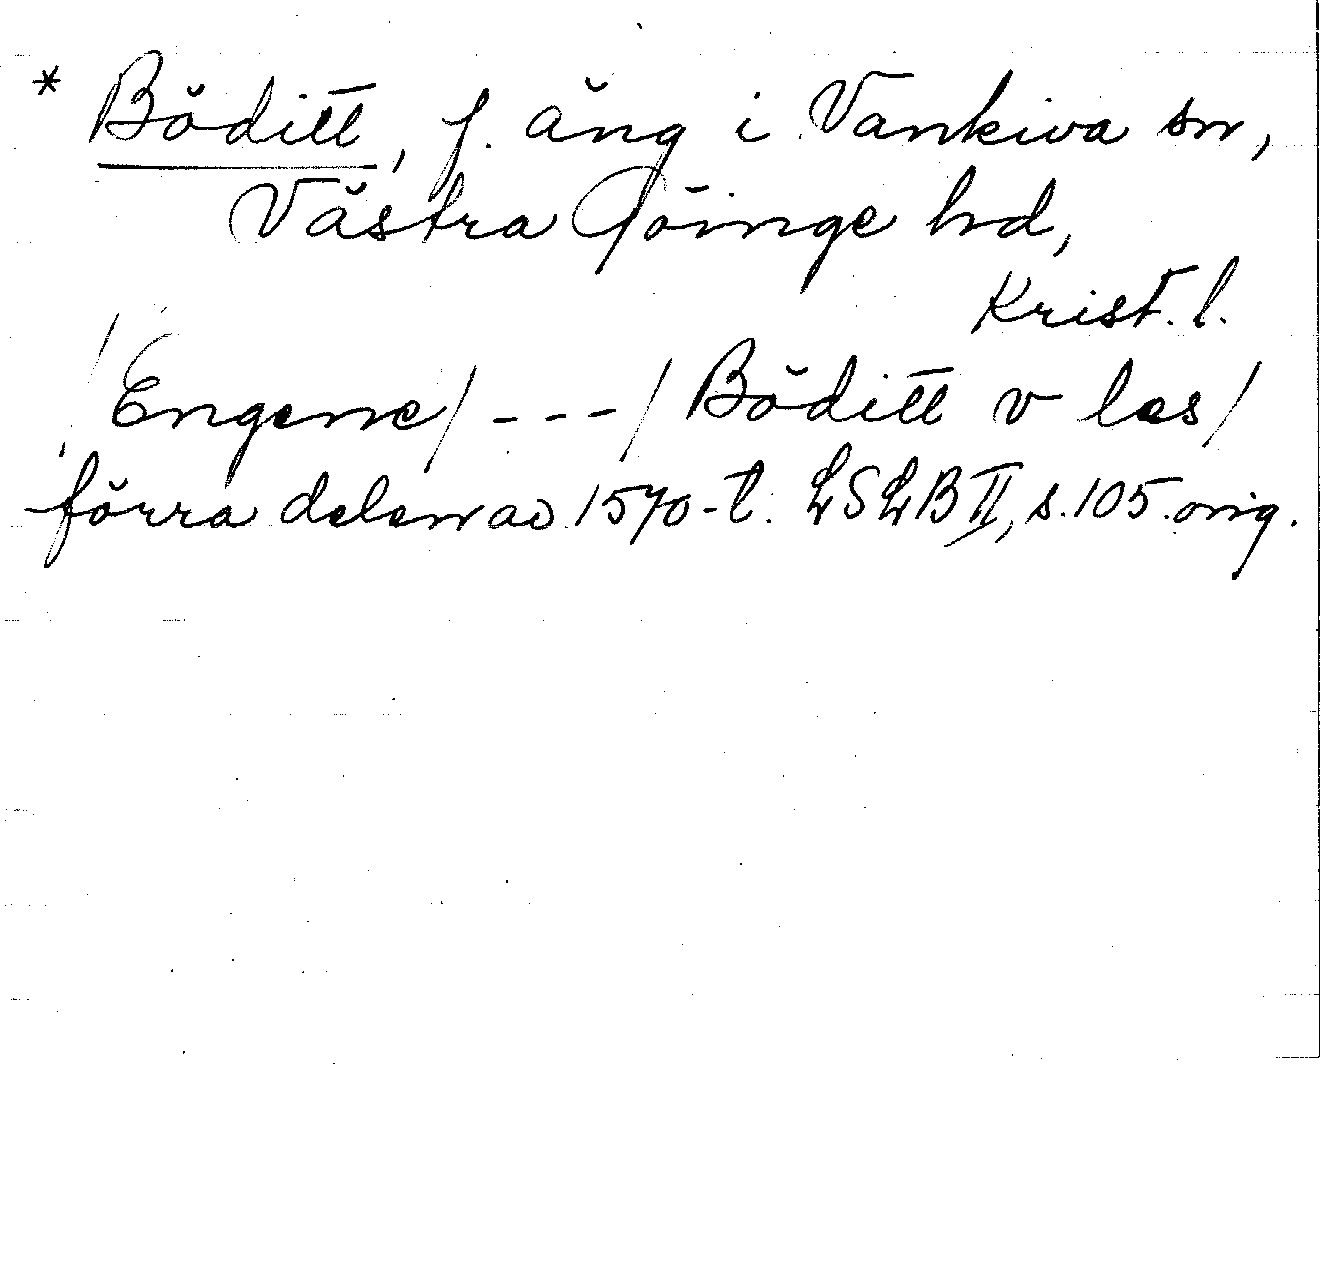 * Böditt, f. äng i Vankiva sn,
Västra Göinge hd,
Krist. l.
/Engene/ - - - / Böditt v les/
förra delen av 1570-t. LSLB II, s. 105. orig.